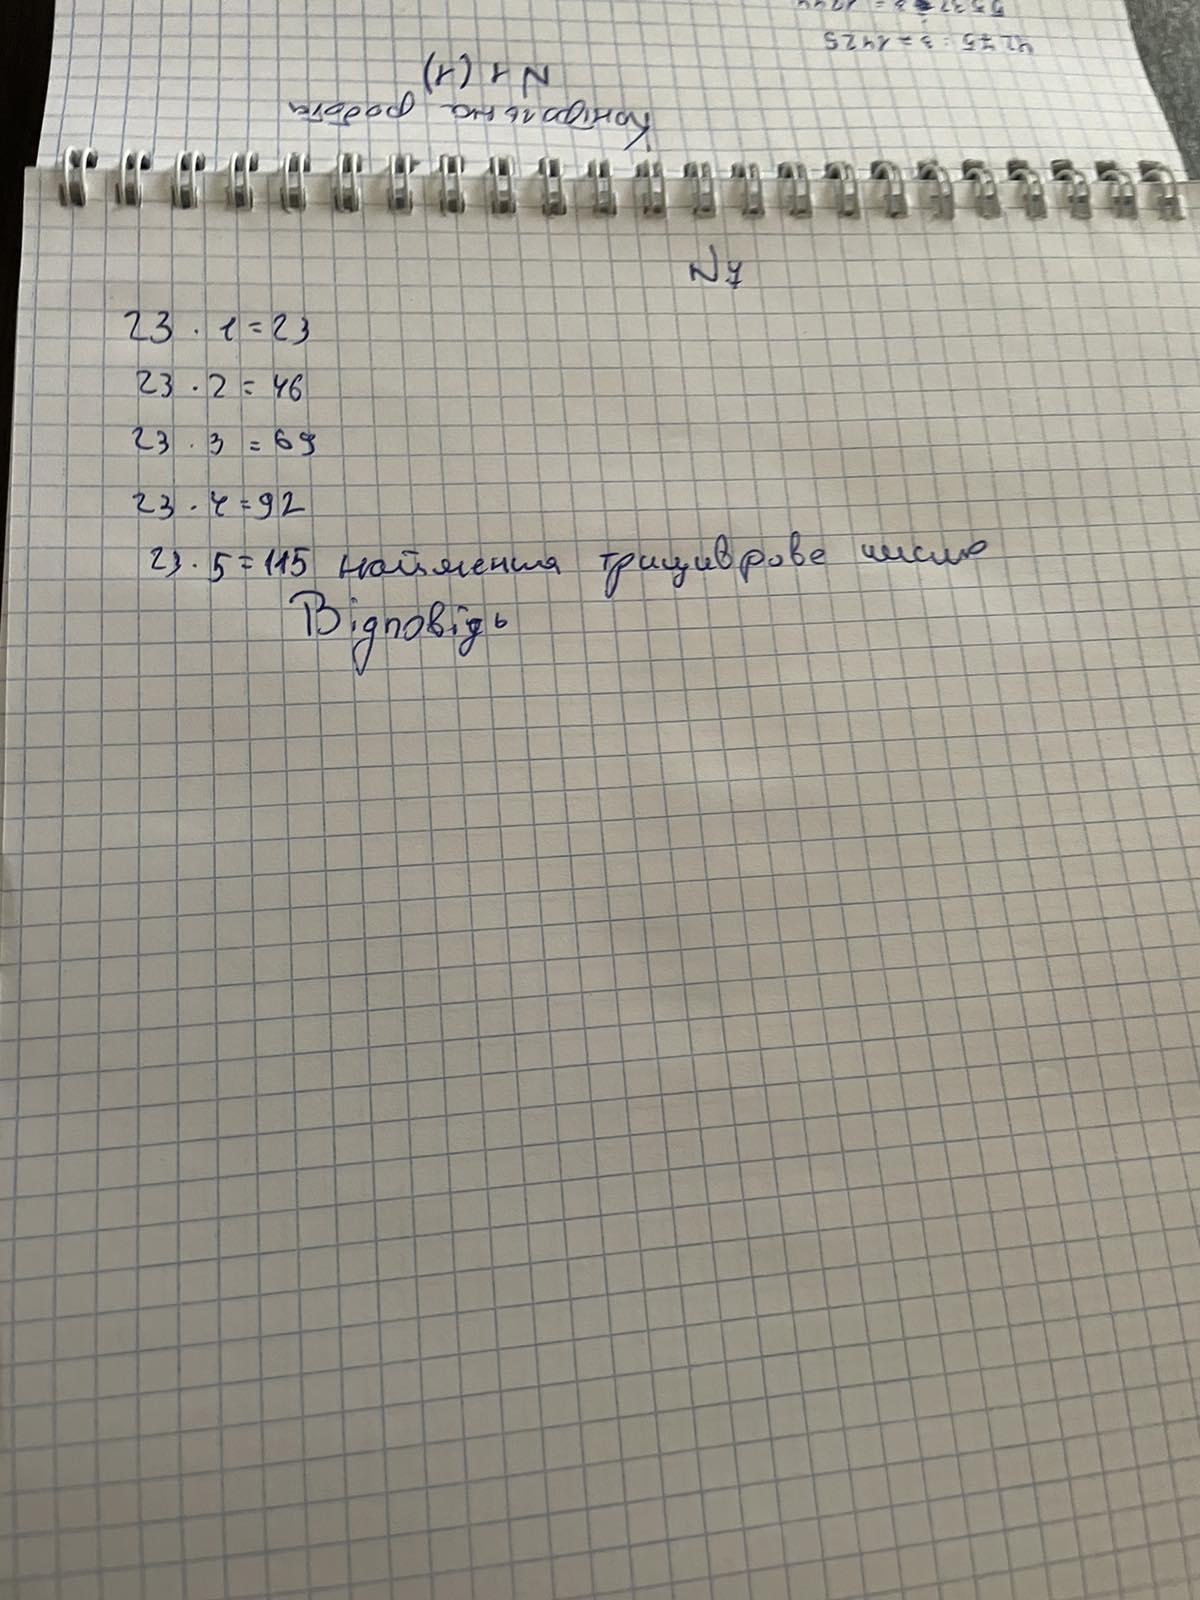 4275 : 3 = 1425
N 1 (1)
Контрольна робота
N 7
23 · 1 = 23
23 · 2 = 46
23 · 3 = 69
23 · 4 = 92
23 · 5 = 115 найменша трицифрове число
Відповідь